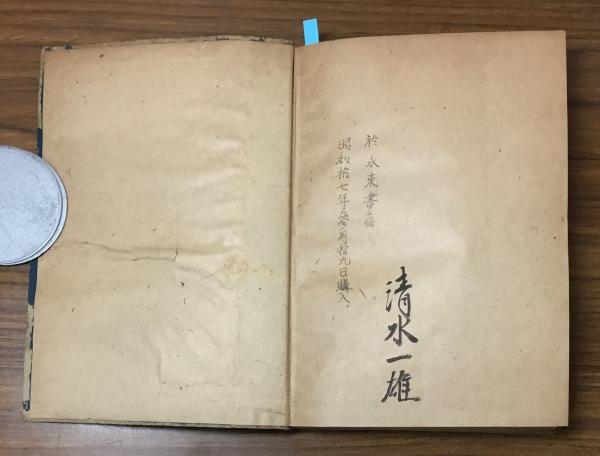 於永東書店
昭和拾七年參月拾九日購入。
清水一雄